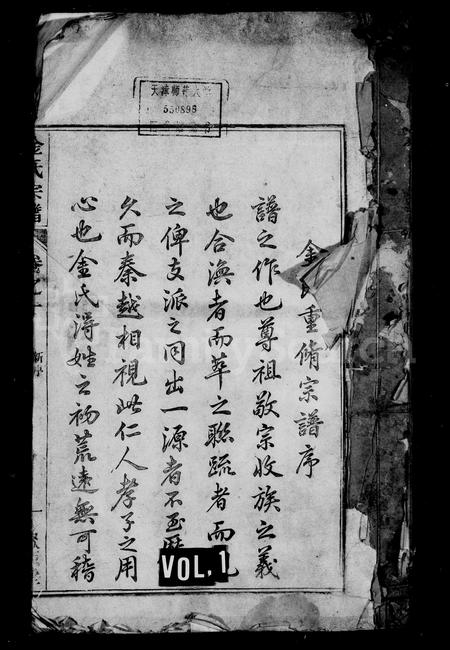 金氏重脩宗譜序
譜之作也尊祖敬宗收族之義
也合渙者而萃之聯疏者而
之俾支派之同出一源者不至歷
久而秦越相視此仁人孝子之用
心也金氏得姓之初荒遠無可稽
金氏宗譜
卷之一
新序
一
天津師範大學
550898
VOL.1
FamilySearch